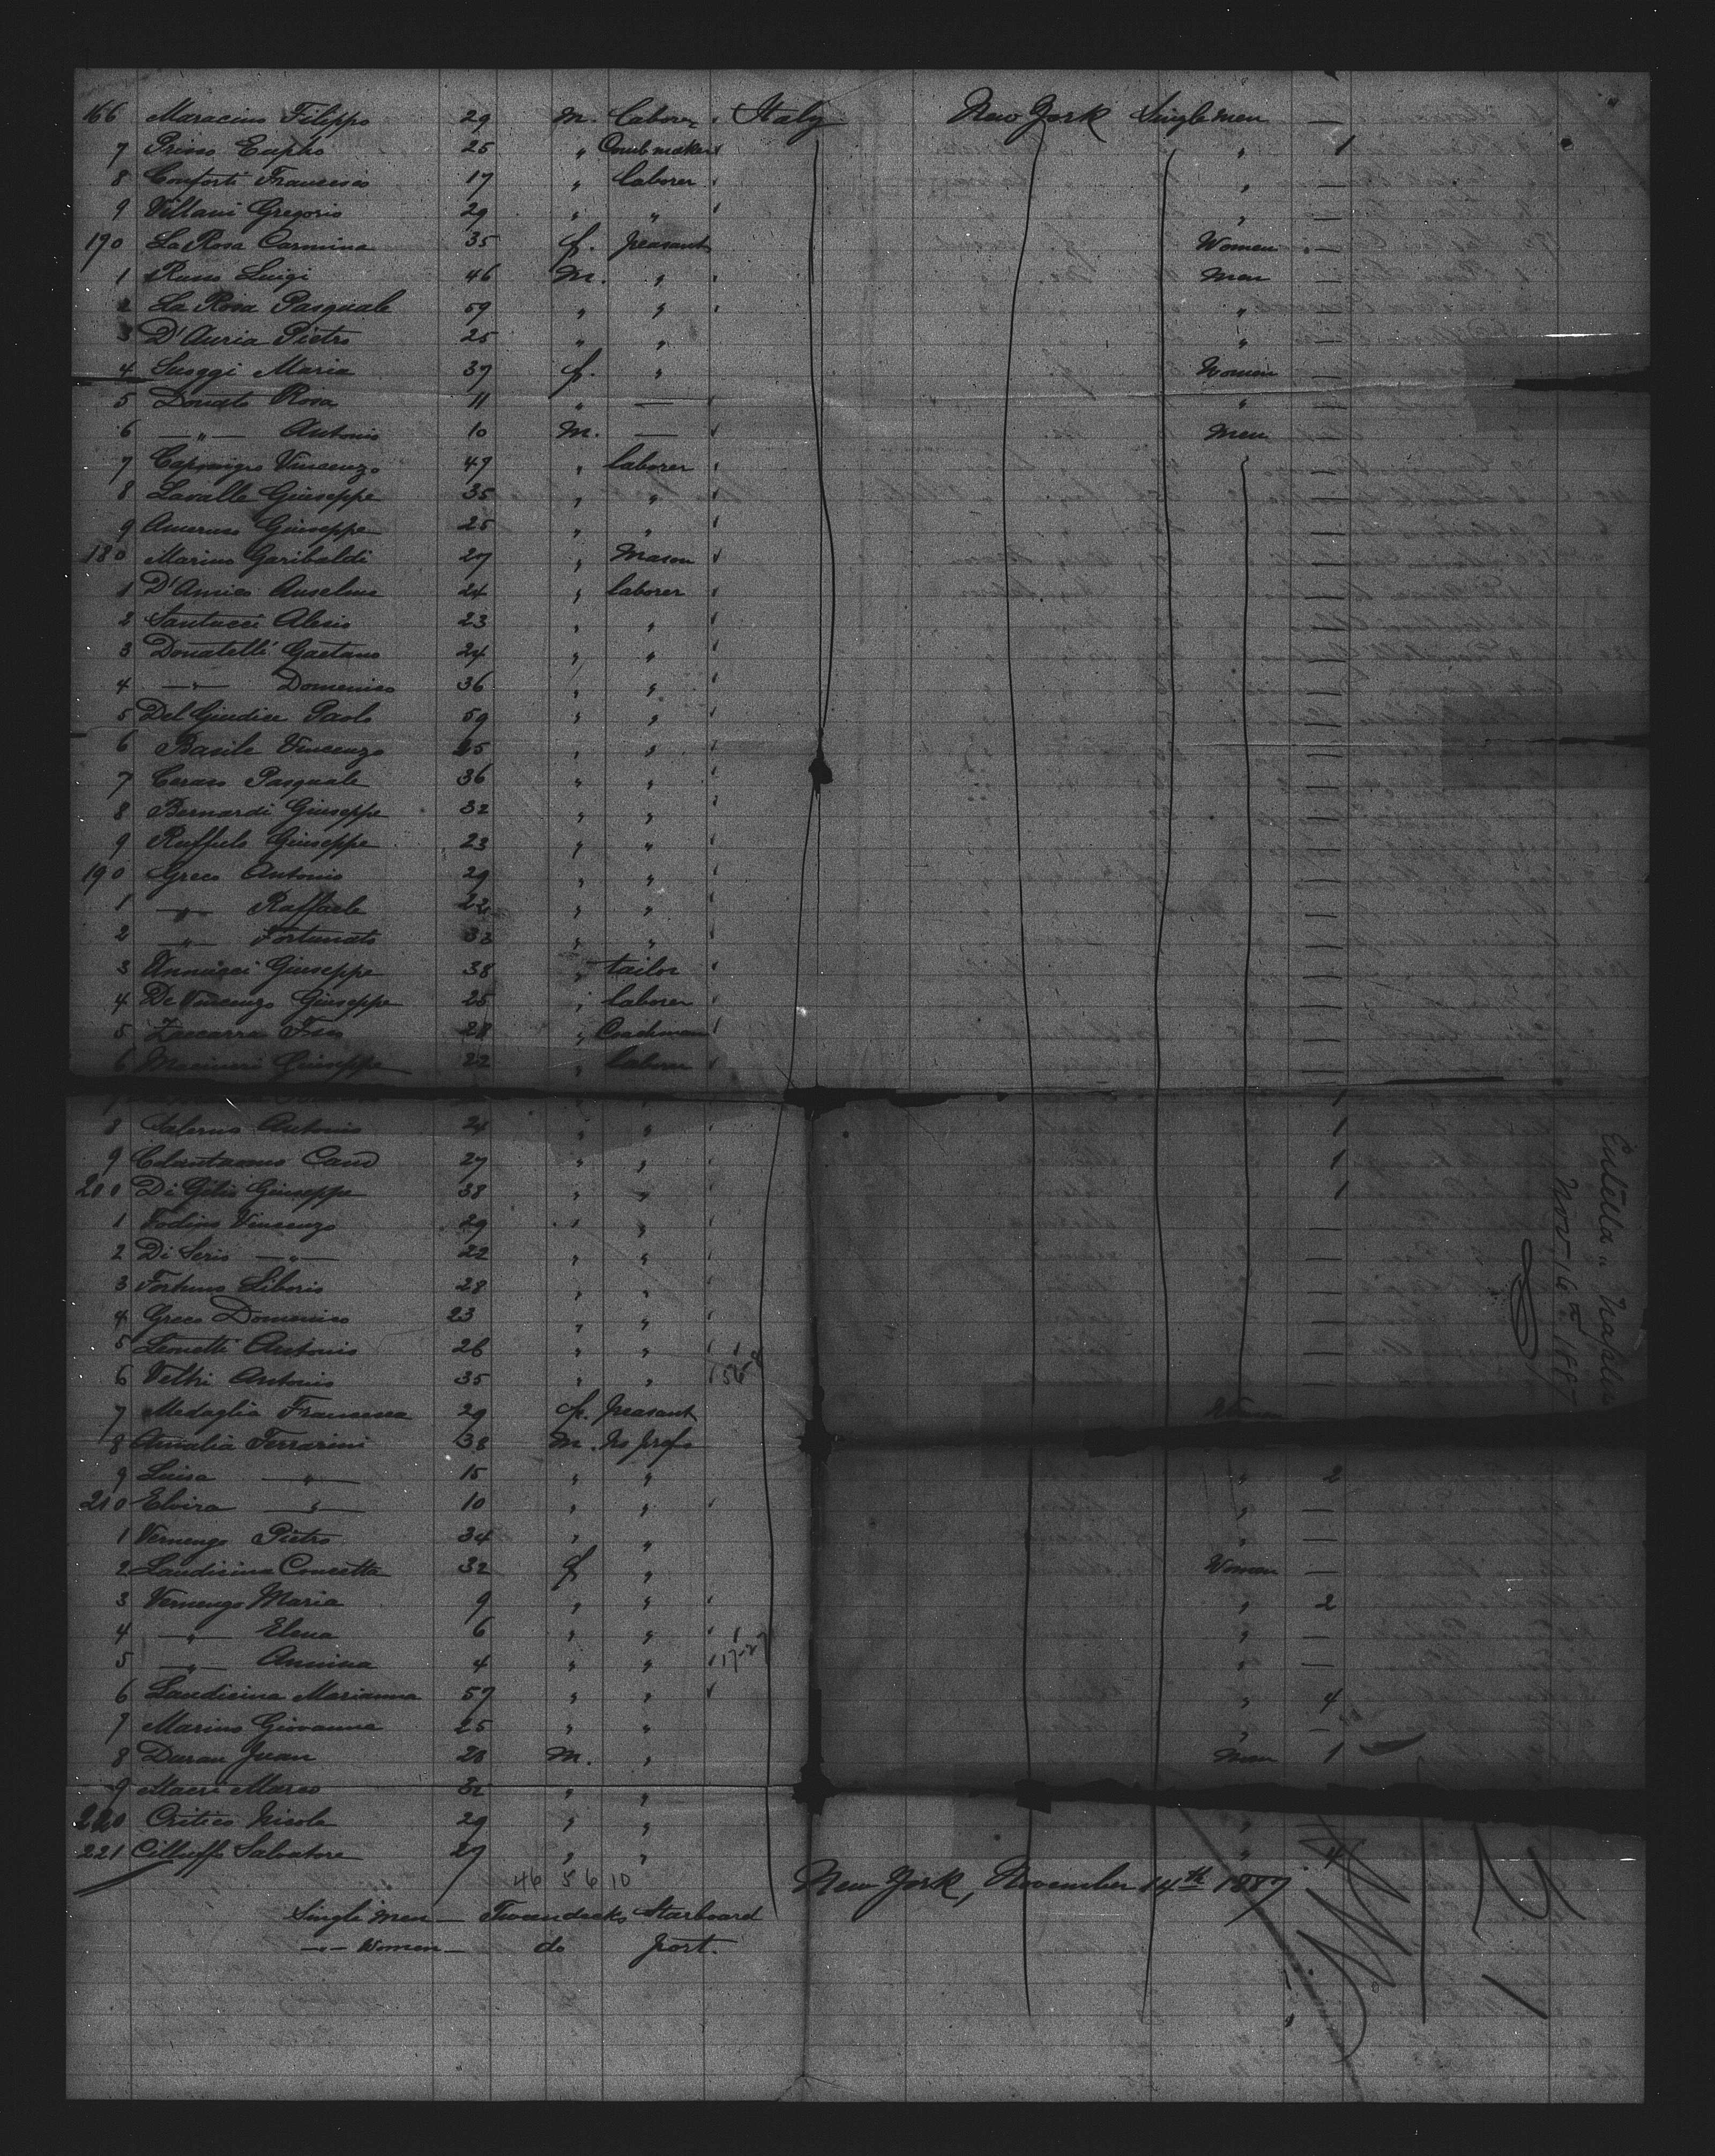 166 Maracino Filippo 29 M. laborer Italy New York Single men —
7 Primo 25 " Comb maker " 1
8 Conforti Francesco 17 " laborer " —
9 Villani Gregorio 29 " " " —
170 La Rosa Carmina 35 f. peasant Women —
1 Russo Luigi 46 M. " Men —
2 La Rosa Pasquale 59 " " " —
3 D'Auria Pietro 25 " " " —
4 Maria 37 f. " Women —
5 Donato Rosa 11 " — " —
6 —"— Antonio 10 M. — Men —
7 Vincenzo 47 " laborer —
8 Lavalle Giuseppe 35 " " —
9 Amoruso Giuseppe 25 " " —
180 Marino Garibaldi 27 " Mason —
1 D'Amico Anselmo 24 " laborer —
2 Santucci Alesio 23 " " —
3 Donatelli Gaetano 24 " " —
4 —"— Domenico 36 " " —
5 Del Giudice Paolo 59 " " —
6 Basile Vincenzo " " —
7 Pasquale 36 " " —
8 Bernardi Giuseppe 32 " " —
9 Ruffolo Giuseppe 23 " " —
190 Greco Antonio 29 " " —
1 —"— Raffaele 22 " " —
2 —"— Fortunato 33 " " —
3 Giuseppe 38 " tailor —
4 De Vincenzo Giuseppe 25 " laborer —
5 Zaccarra 28 " Coachman —
6 Giuseppe 22 " laborer —
1
8 Salerno Antonio 24 " " 1
9 27 " " 1
200 Di Gilio Giuseppe 38 " " 1
1 Todino Vincenzo 29 " " —
2 Di Serio —"— 22 " " —
3 Liborio 28 " " —
4 Greco Domenico 23 " " —
5 Leonetti Antonio 26 " " —
6 Veltri Antonio 35 " " —
7 Medaglia Francesca 29 f. peasant Women
8 Amalia Ferrarini 38 M. No profs
9 Luisa —"— 15 " " " 2
210 Elvira —"— 10 " " " —
1 Vernengo Pietro 34 " " " —
2 Laudicina Concetta 32 f " Women —
3 Vernengo Maria 9 " " " 2
4 —"— Elena 6 " " " —
5 —"— Annina 4 " " " —
6 Laudicina Marianna 57 " " " 4
7 Marino Giovanna 25 " " " —
8 Duran Juan 28 M. " Men 1
9 Macri Marco 32 " "
220 Critico Nicola 29 " " "
221 Cilluffo Salvatore 27 " " " 4
46 5 6 10
New York, November 14th 1887
Single men — Tweendecks Starboard
—"— Women — do port.
Entella Naples
Nov 16th 1887